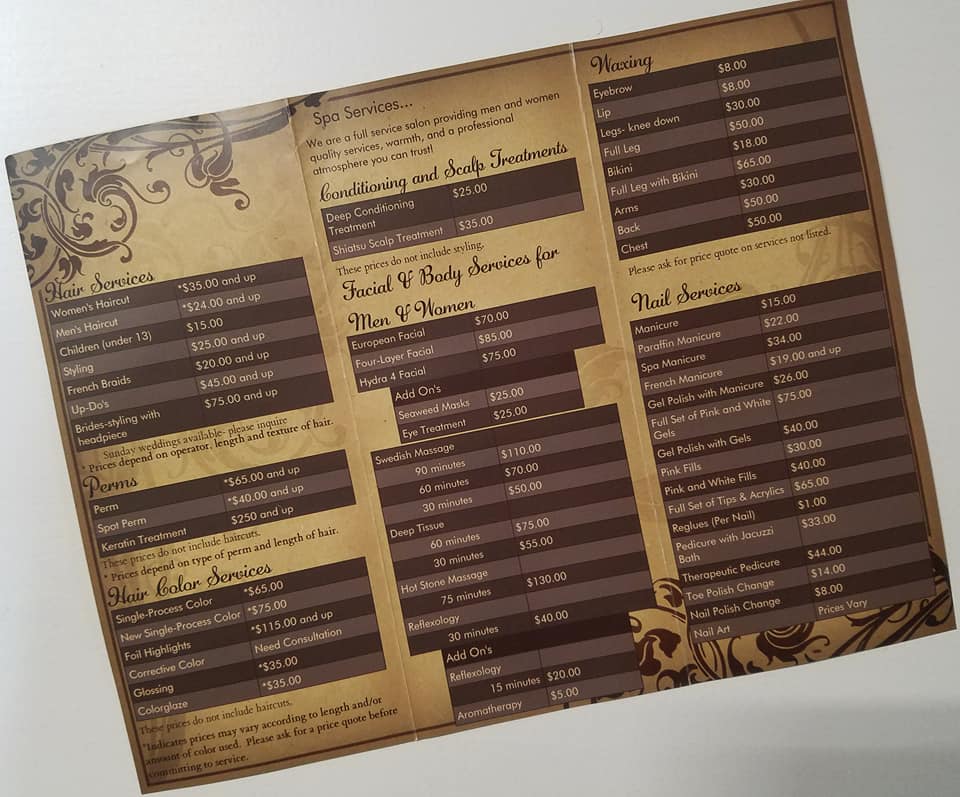 Hair Services
Women's Haircut *$35.00 and up
Men's Haircut *$24.00 and up
Children (under 13) $15.00
Styling $25.00 and up
French Braids $20.00 and up
Up-Do's $45.00 and up
Brides-styling with $75.00 and up
headpiece
Sunday weddings available- please inquire
* Prices depend on operator, length and texture of hair.
Perms
Perm *$65.00 and up
Spot Perm *$40.00 and up
Keratin Treatment $250 and up
These prices do not include haircuts.
* Prices depend on type of perm and length of hair.
Hair Color Services
Single-Process Color *$65.00
New Single-Process Color *$75.00
Foil Highlights *$115.00 and up
Corrective Color Need Consultation
Glossing *$35.00
Colorglaze *$35.00
These prices do not include haircuts.
*Indicates prices may vary according to length and/or
amount of color used. Please ask for a price quote before
committing to service.
Spa Services...
We are a full service salon providing men and women
quality services, warmth, and a professional
atmosphere you can trust!
Conditioning and Scalp Treatments
Deep Conditioning $25.00
Treatment
Shiatsu Scalp Treatment $35.00
These prices do not include styling.
Facial & Body Services for
Men & Women
European Facial $70.00
Four-Layer Facial $85.00
Hydra 4 Facial $75.00
Add On's
Seaweed Masks $25.00
Eye Treatment $25.00
Swedish Massage
90 minutes $110.00
60 minutes $70.00
30 minutes $50.00
Deep Tissue
60 minutes $75.00
30 minutes $55.00
Hot Stone Massage
75 minutes $130.00
Reflexology
30 minutes $40.00
Add On's
Reflexology
15 minutes $20.00
Aromatherapy $5.00
Waxing
Eyebrow $8.00
Lip $8.00
Legs- knee down $30.00
Full Leg $50.00
Bikini $18.00
Full Leg with Bikini $65.00
Arms $30.00
Back $50.00
Chest $50.00
Please ask for price quote on services not listed.
Nail Services
Manicure $15.00
Paraffin Manicure $22.00
Spa Manicure $34.00
French Manicure $19.00 and up
Gel Polish with Manicure $26.00
Full Set of Pink and White $75.00
Gels
Gel Polish with Gels $40.00
Pink Fills $30.00
Pink and White Fills $40.00
Full Set of Tips & Acrylics $65.00
Reglues (Per Nail) $1.00
Pedicure with Jacuzzi $33.00
Bath
Therapeutic Pedicure $44.00
Toe Polish Change $14.00
Nail Polish Change $8.00
Nail Art Prices Vary